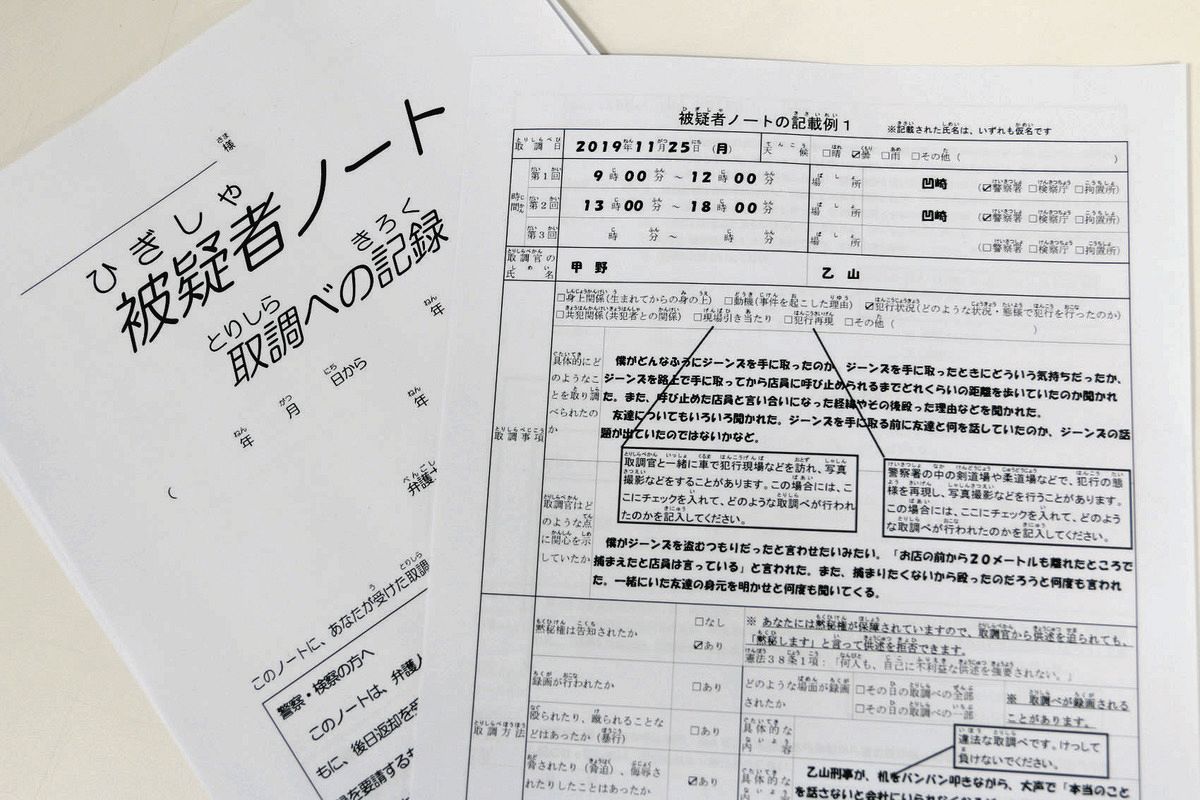 様
ひぎしゃ
被疑者ノート
とりしら きろく
取調べの記録
年 月 日から
年
年
弁護
このノートに、あなたが受けた取調
警察・検察の方へ
このノートは、弁護人
もに、後日返却を
を要請する
被疑者ノートの記載例1
※記載された氏名は、いずれも仮名です
取調日 2019年11月25日 (月) 天候 □晴 ☑曇 □雨 □その他 ( )
時間 第1回 9時00分 ~ 12時00分 場所 凹崎 (☑警察署 □検察庁 □拘置所)
第2回 13時00分 ~ 18時00分 場所 凹崎 (☑警察署 □検察庁 □拘置所)
第3回 時 分 ~ 時 分 場所 (□警察署 □検察庁 □拘置所)
取調官の氏名 甲野 乙山
取調事項
□身上関係(生まれてからの身の上) □動機(事件を起こした理由) ☑犯行状況(どのような状況・態様で犯行を行ったのか)
□共犯関係(共犯者との関係) □現場引き当たり □犯行再現 □その他 ( )
具体的にど
のようなこ
とを取り調
べられたの
か
僕がどんなふうにジーンズを手に取ったのか、ジーンズを手に取ったときにどういう気持ちだったか、
ジーンズを路上で手に取ってから店員に呼び止められるまでどれくらいの距離を歩いていたのか聞かれ
た。また、呼び止めた店員と言い合いになった経緯やその後殴った理由などを聞かれた。
友達についてもいろいろ聞かれた。ジーンズを手に取る前に友達と何を話していたのか、ジーンズの話
題が出ていたのではないかなど。
取調官と一緒に車で犯行現場などを訪れ、写真
撮影などをすることがあります。この場合には、こ
こにチェックを入れて、どのような取調べが行われ
たのかを記入してください。
警察署の中の剣道場や柔道場などで、犯行の態
様を再現し、写真撮影などを行うことがあります。
この場合には、ここにチェックを入れて、どのよう
な取調べが行われたのかを記入してください。
取調官はど
のような点
に関心を示
していたか
僕がジーンズを盗むつもりだったと言わせたいみたい。「お店の前から20メートルも離れたところで
捕まえたと店員は言っている」と言われた。また、捕まりたくないから殴ったのだろうと何度も言われ
た。一緒にいた友達の身元を明かせと何度も聞いてくる。
取調方法
黙秘権は告知されたか
□なし
☑あり
※ あなたには黙秘権が保障されていますので、取調官から供述を迫られても、
「黙秘します」と言って供述を拒否できます。
憲法38条1項:「何人も、自己に不利益な供述を強要されない。」
録画が行われたか □あり
どのような場面が録画
されたか
□その日の取調べの全部
□その日の取調べの一部
※ 取調べが録画される
ことがあります。
殴られたり、蹴られることな
どはあったか(暴行)
□あり
具体的な
内容
違法な取調べです。けっして
負けないでください。
脅されたり(脅迫)、侮辱さ
れたりしたことはあったか
☑あり
具体的な
内容
乙山刑事が、机をバンバン叩きながら、大声で「本当のこと